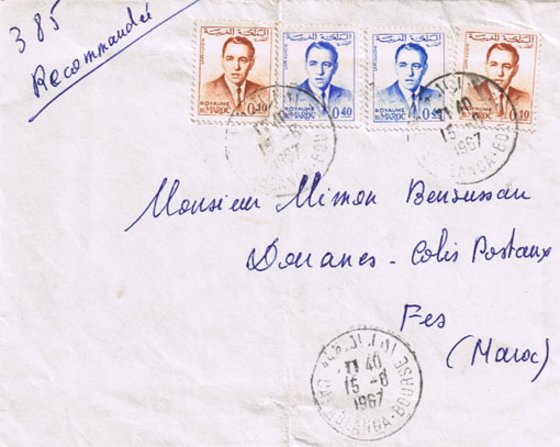 385
Recommandée
المملكة المغربية
ROYAUME
DU MAROC
0.10
المملكة المغربية
ROYAUME
DU MAROC
0.40
المملكة المغربية
ROYAUME
DU MAROC
0.40
المملكة المغربية
ROYAUME
DU MAROC
0.10
40
15 -8
1967
40
15
1967
CASABLANCA-BOURSE
Monsieur Mimon Bensussan
Douanes - Colis Postaux
Fes
(Maroc)
40
15 -8
1967
CASABLANCA-BOURSE